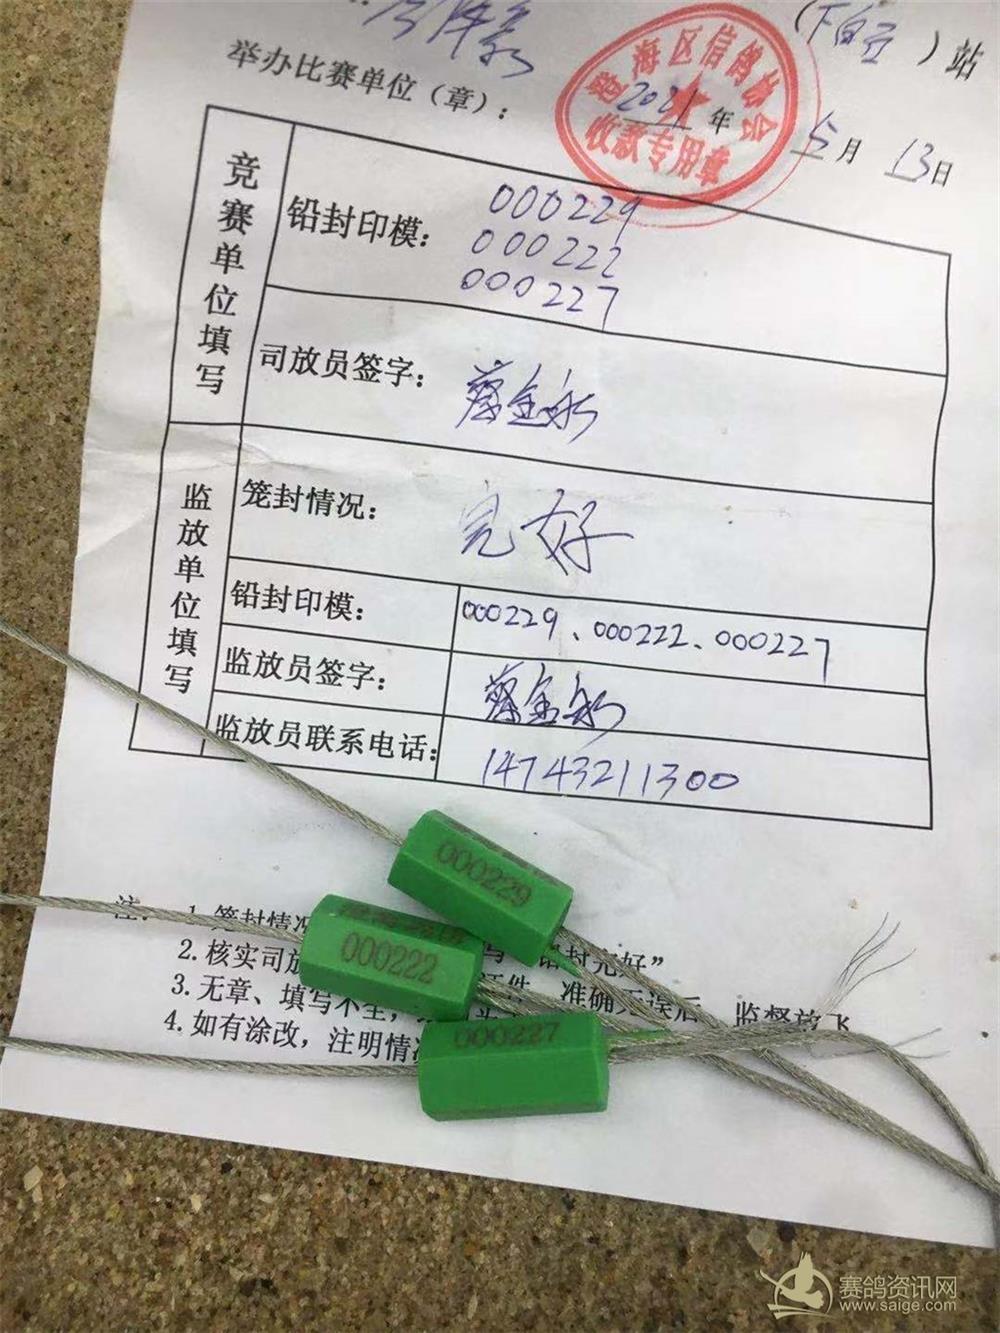 （下白豆）站
举办比赛单位（章）：
2021年5月13日
海区信鸽协会
收款专用章
竞赛单位填写
铅封印模：
000229
000222
000227
司放员签字：
蔡金永
监放单位填写
笼封情况：
完好
铅封印模：
000229、000222、000227
监放员签字：
蔡金永
监放员联系电话：
14743211300
000229
000222
000227
注：1.笼封情况
铅封完好”
2.核实司放
准确无误后，监督放飞
3.无章、填写不全，
4.如有涂改，注明情况
赛鸽资讯网
www.saige.com